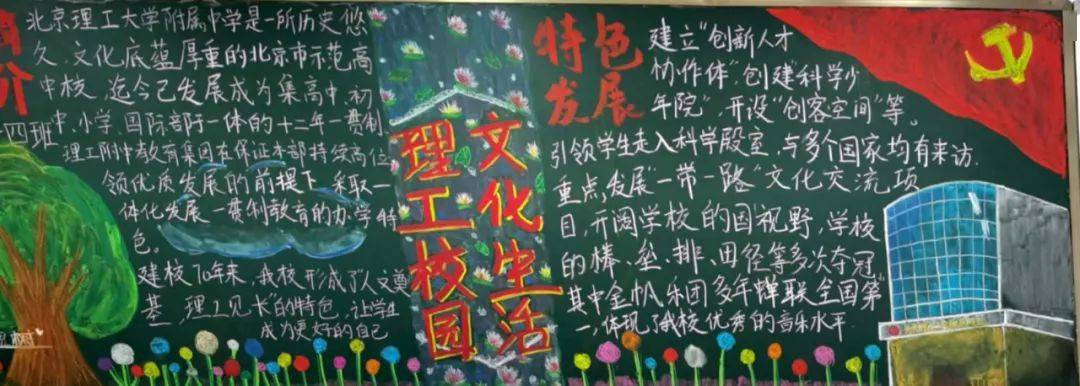 介
四班
北京理工大学附属中学是一所历史悠
久、文化底蕴厚重的北京市示范高
中校，迄今已发展成为集高中、初
中、小学、国际部于一体的十二年一贯制
理工附中教育集团在保证本部持续高位
领优质发展的前提下，采取一
体化发展一贯制教育的办学特
色。
建校70年来，我校形成了"人文奠
基，理工见长"的特色，让学生
成为更好的自己
理工校园
文化生活
特色
发展
建立"创新人才
协作体"，创建"科学少
年院"，开设"创客空间"等。
引领学生走入科学殿室，与多个国家均有来访.
重点发展"一带一路"文化交流项
目，开阔学校的国视野，学校
的棒、垒、排、田径等多次夺冠
其中金帆乐团多年蝉联全国第
一，体现了我校优秀的音乐水平